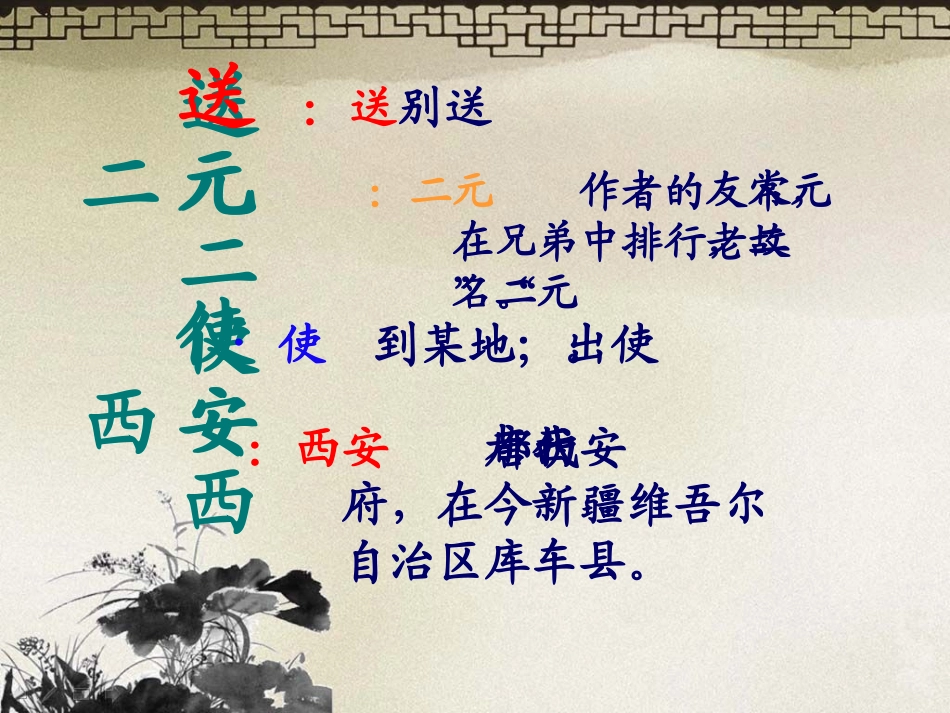 送
元
二
使
安
西
二
西
：送别送
：二元 作者的友 元
在兄弟中排行老 故
”名。二“元
：使 到某地；出使
：西安 安
府，在今新疆维吾尔
自治区库车县。